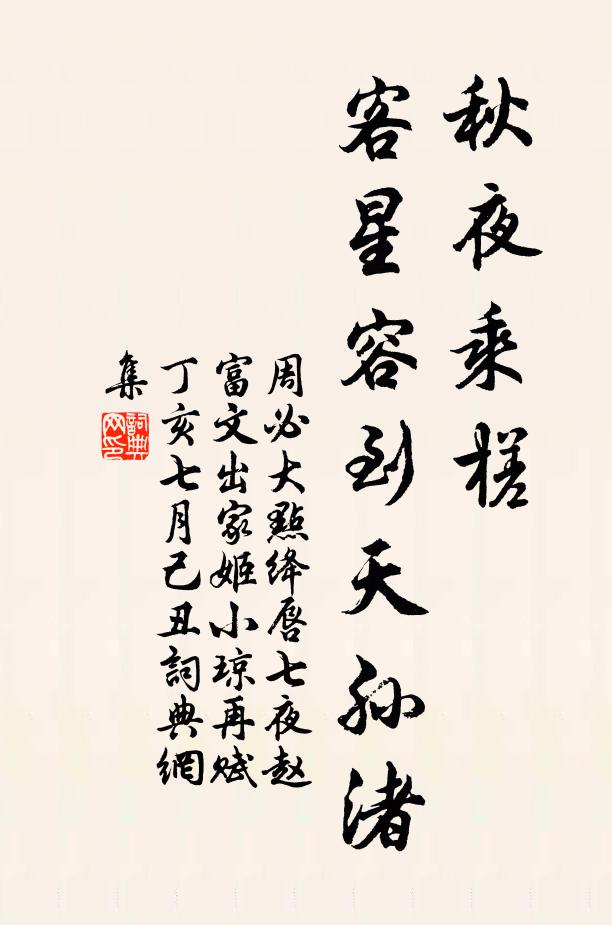 秋夜乘槎
客星容到天孙渚
周必大點绛唇七夜赵
富文出家姬小琼再赋
丁亥七月己丑詞典網
集
詞典网印